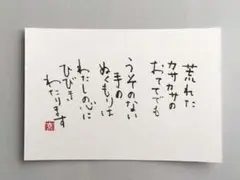 荒れた
カサカサの
おててでも
うそのない
手の
ぬくもりは
わたしの心に
ひびき
わたります